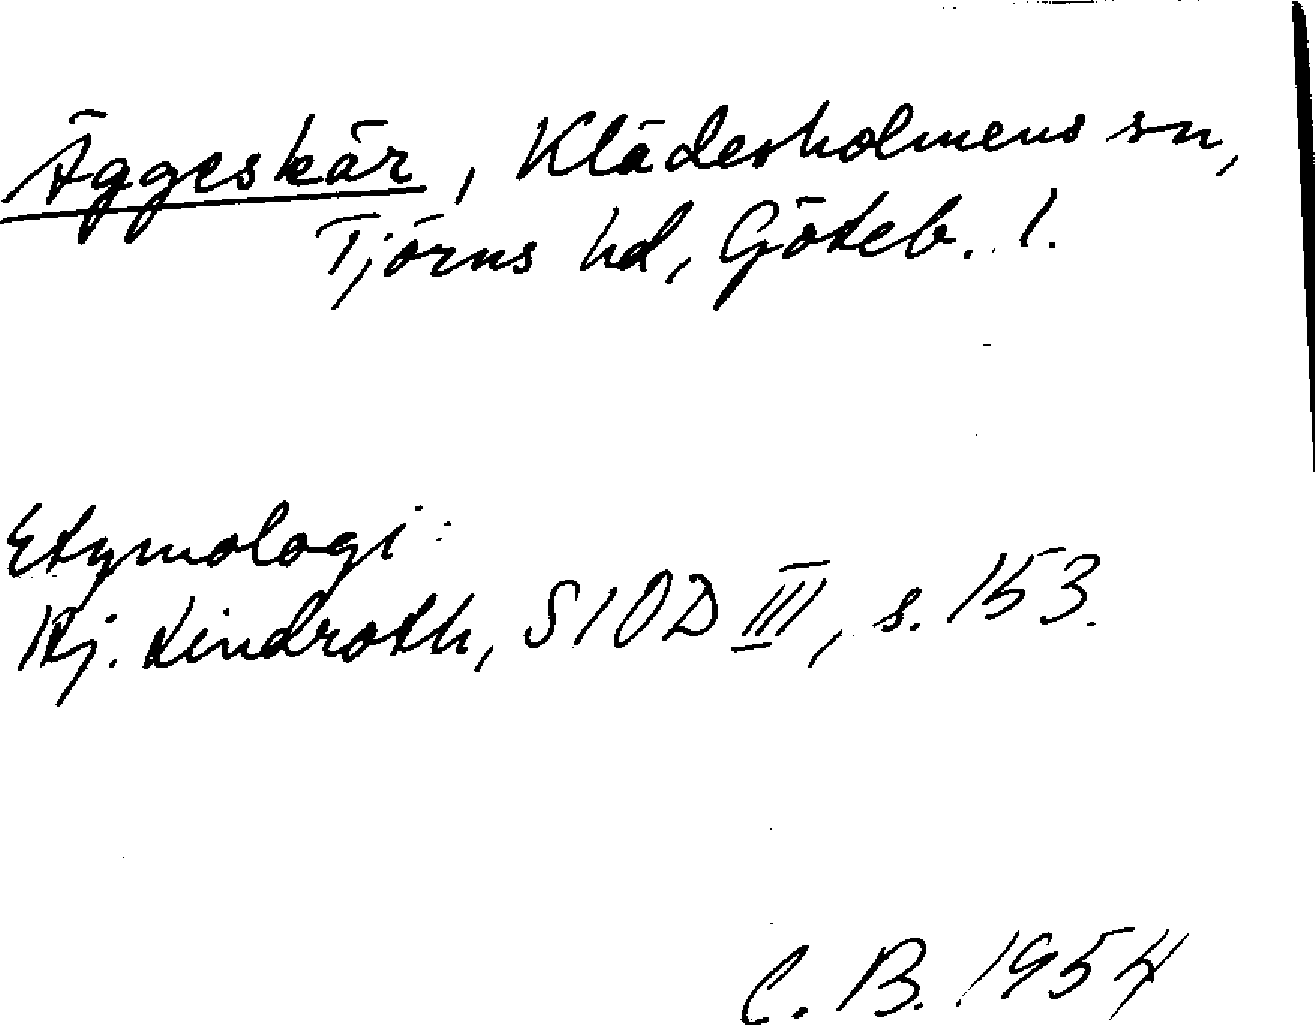 Äggeskär, Klädesholmens sn,
Tjörns hd, Göteb. l.
Etymologi:
Hj. Lindroth, SIOD III, s. 153.
C. B. 1954